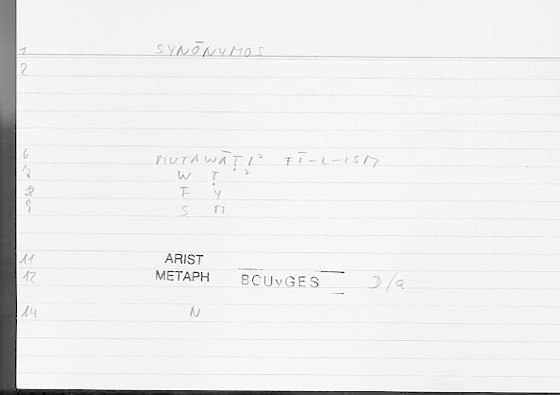 1 SYNŌNYMOS
2
6 MUTAWĀṬIʾ FĪ-L-ISM
7 W Ṭ ʾ
8 F Y
9 S M
11 ARIST
12 METAPH BCUvGES D/a
14 N